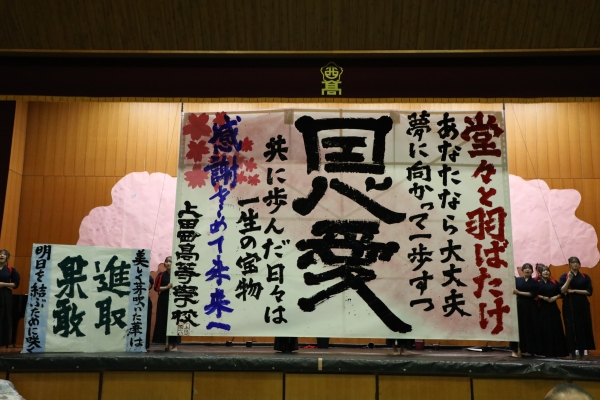 西高
堂々と羽ばたけ
あなたなら大丈夫
夢に向かって一歩ずつ
恩愛
共に歩んだ日々は
一生の宝物
感謝を込めて未来へ
上田西高等学校
美しく芽吹いた華は
進取
果敢
明日を結ぶために咲く